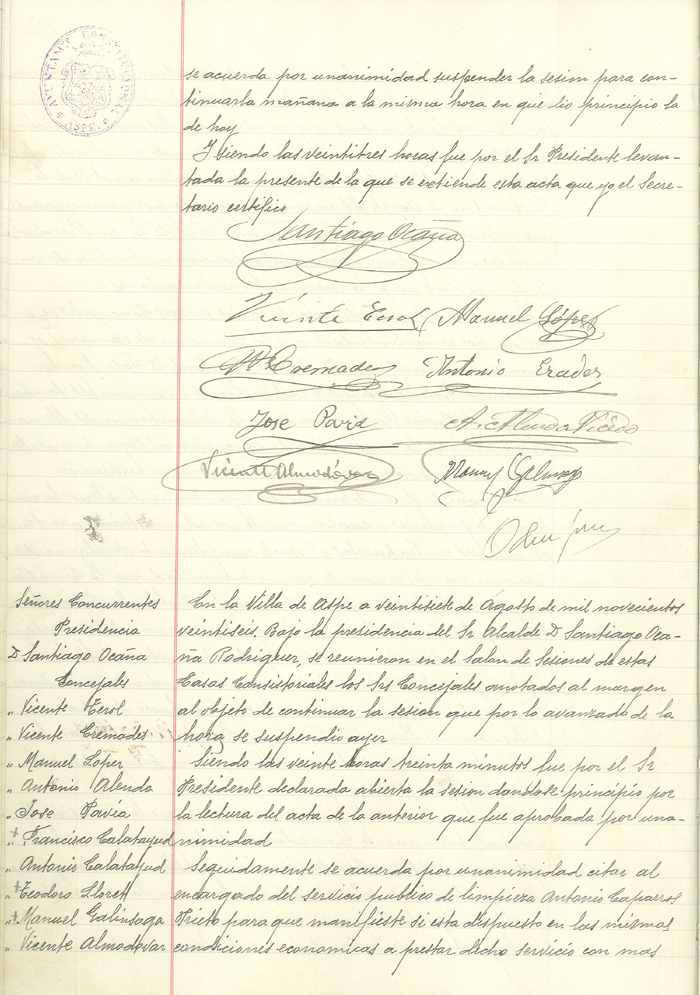 AYUNTAMIENTO CONSTITUCIONAL
ASPE
se acuerda por unanimidad suspender la sesion para con-
tinuarla mañana a la misma hora en que dio principio la
de hoy
Y siendo las veintitres horas fue por el Sr Presidente levan-
tada la presente de la que se extiende esta acta que yo el Secre-
tario certifico
Santiago Ocaña
Vicente Erol Manuel López
V Cremades Antonio
Jose Pavia A. Almodóvar
Vicente Almodóvar Manuel
Señores Concurrentes
Presidencia
D Santiago Ocaña
Concejales
„ Vicente Terol
„ Vicente Cremádes
„ Manuel Lopez
„ Antonio Alenda
„ Jose Pavía
„ + Francisco Calatayud
„ Antonio Calatayud
„ + Teodoro Lloret
„ + Manuel Galinsoga
„ Vicente Almodovar
En la Villa de Aspe a veintisiete de Agosto de mil novecientos
veintiseis. Bajo la presidencia del Sr Alcalde D Santiago Oca-
ña Rodriguez, se reunieron en el Salon de Sesiones de estas
Casas Consistoriales los Srs Concejales anotados al margen
al objeto de continuar la sesion que por lo avanzado de la
hora se suspendio ayer
Siendo las veinte horas treinta minutos fue por el Sr
Presidente declarada abierta la sesion dandose principio por
la lectura del acta de la anterior que fue aprobada por una-
nimidad
Seguidamente se acuerda por unanimidad citar al
encargado del servicio publico de limpieza Antonio Caparros
Prieto para que manifieste si esta dispuesto en las mismas
condiciones economicas a prestar dicho servicio con mas